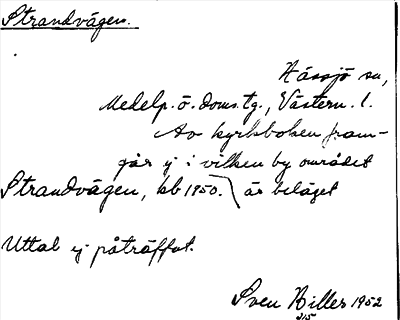 Strandvägen.
Hässjö sn,
Medelp. ö. doms.tg., Västern. l.
Av kyrkboken fram-
går ej i vilken by området
Strandvägen, kb 1950. är beläget
Uttal ej påträffat.
Sven Biller 1952